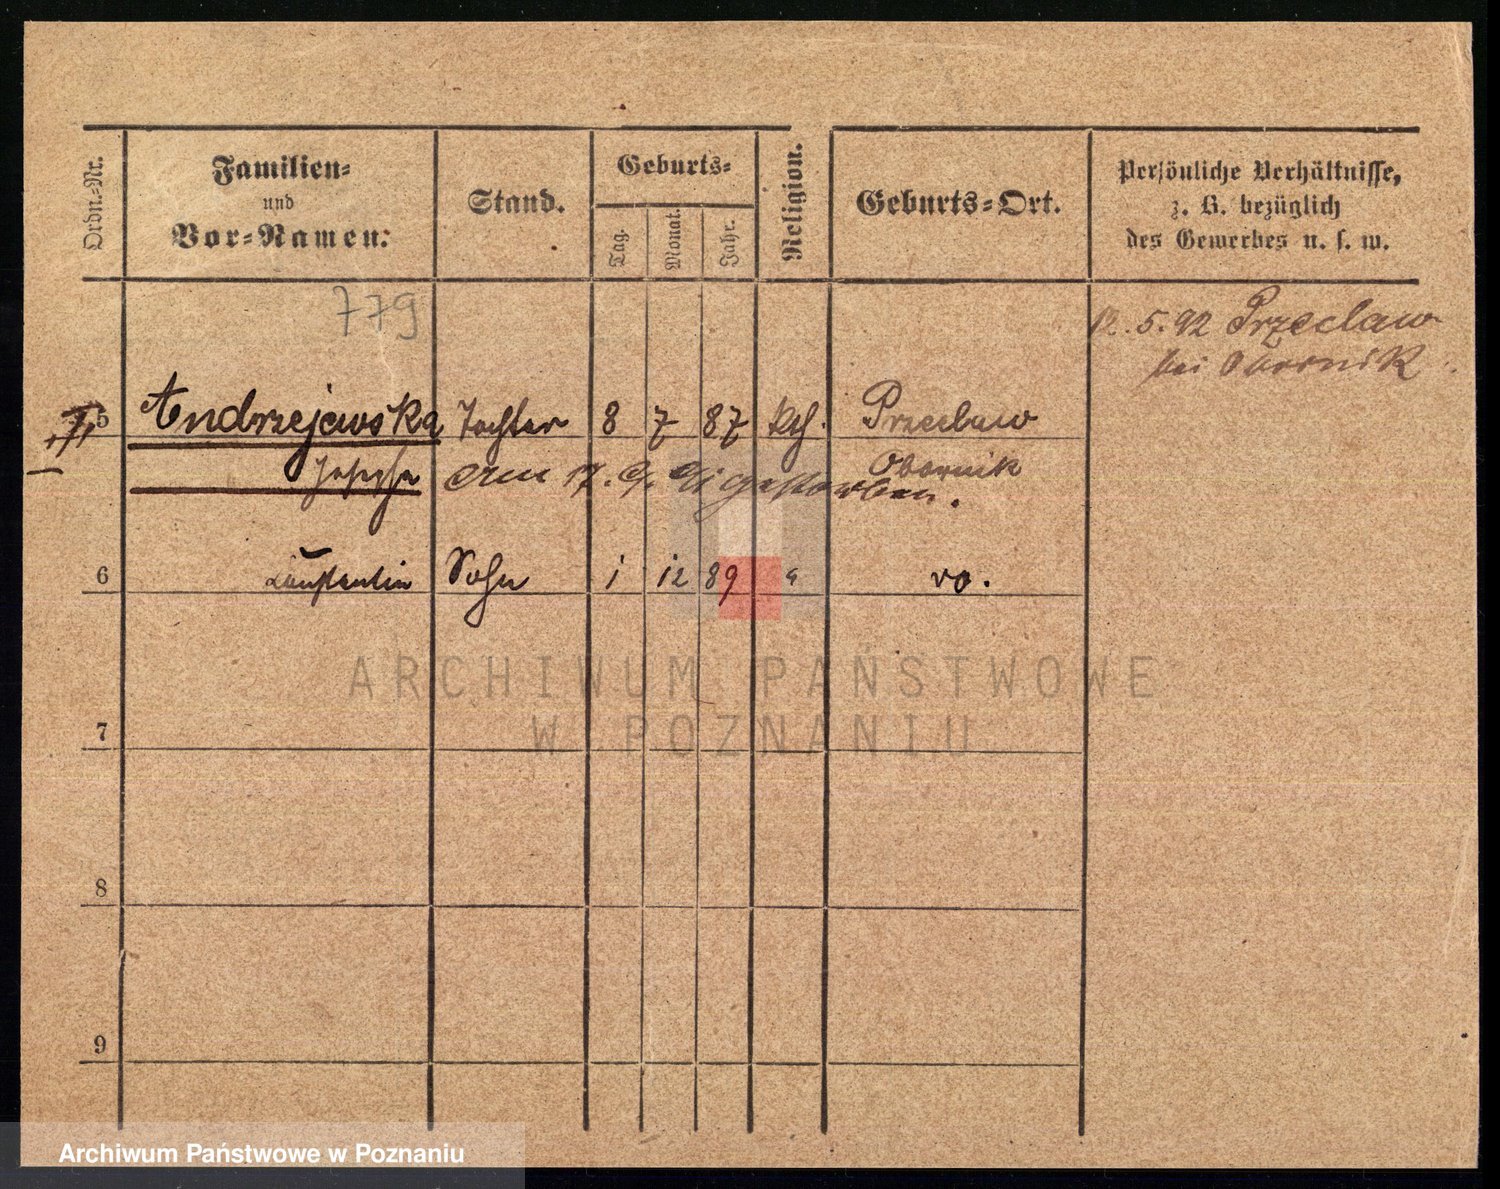 Ordn.-Nr.
Familien-
und
Vor-Namen.
Stand.
Geburts-
Tag.
Monat.
Jahr.
Religion.
Geburts-Ort.
Persönliche Verhältnisse,
z. B. bezüglich
des Gewerbes u. s. w.
779
12. 5. 92 Przeclaw
bei Obornik
5 Andrzejewska Tochter 8 7 87 kth. Przeclaw
Josepha Obornik
am 17. 9. 91 gestorben.
6 Constantin Sohn 1 12 89 " vo.
ARCHIWUM PAŃSTWOWE
W POZNANIU
7
8
9
Archiwum Państwowe w Poznaniu